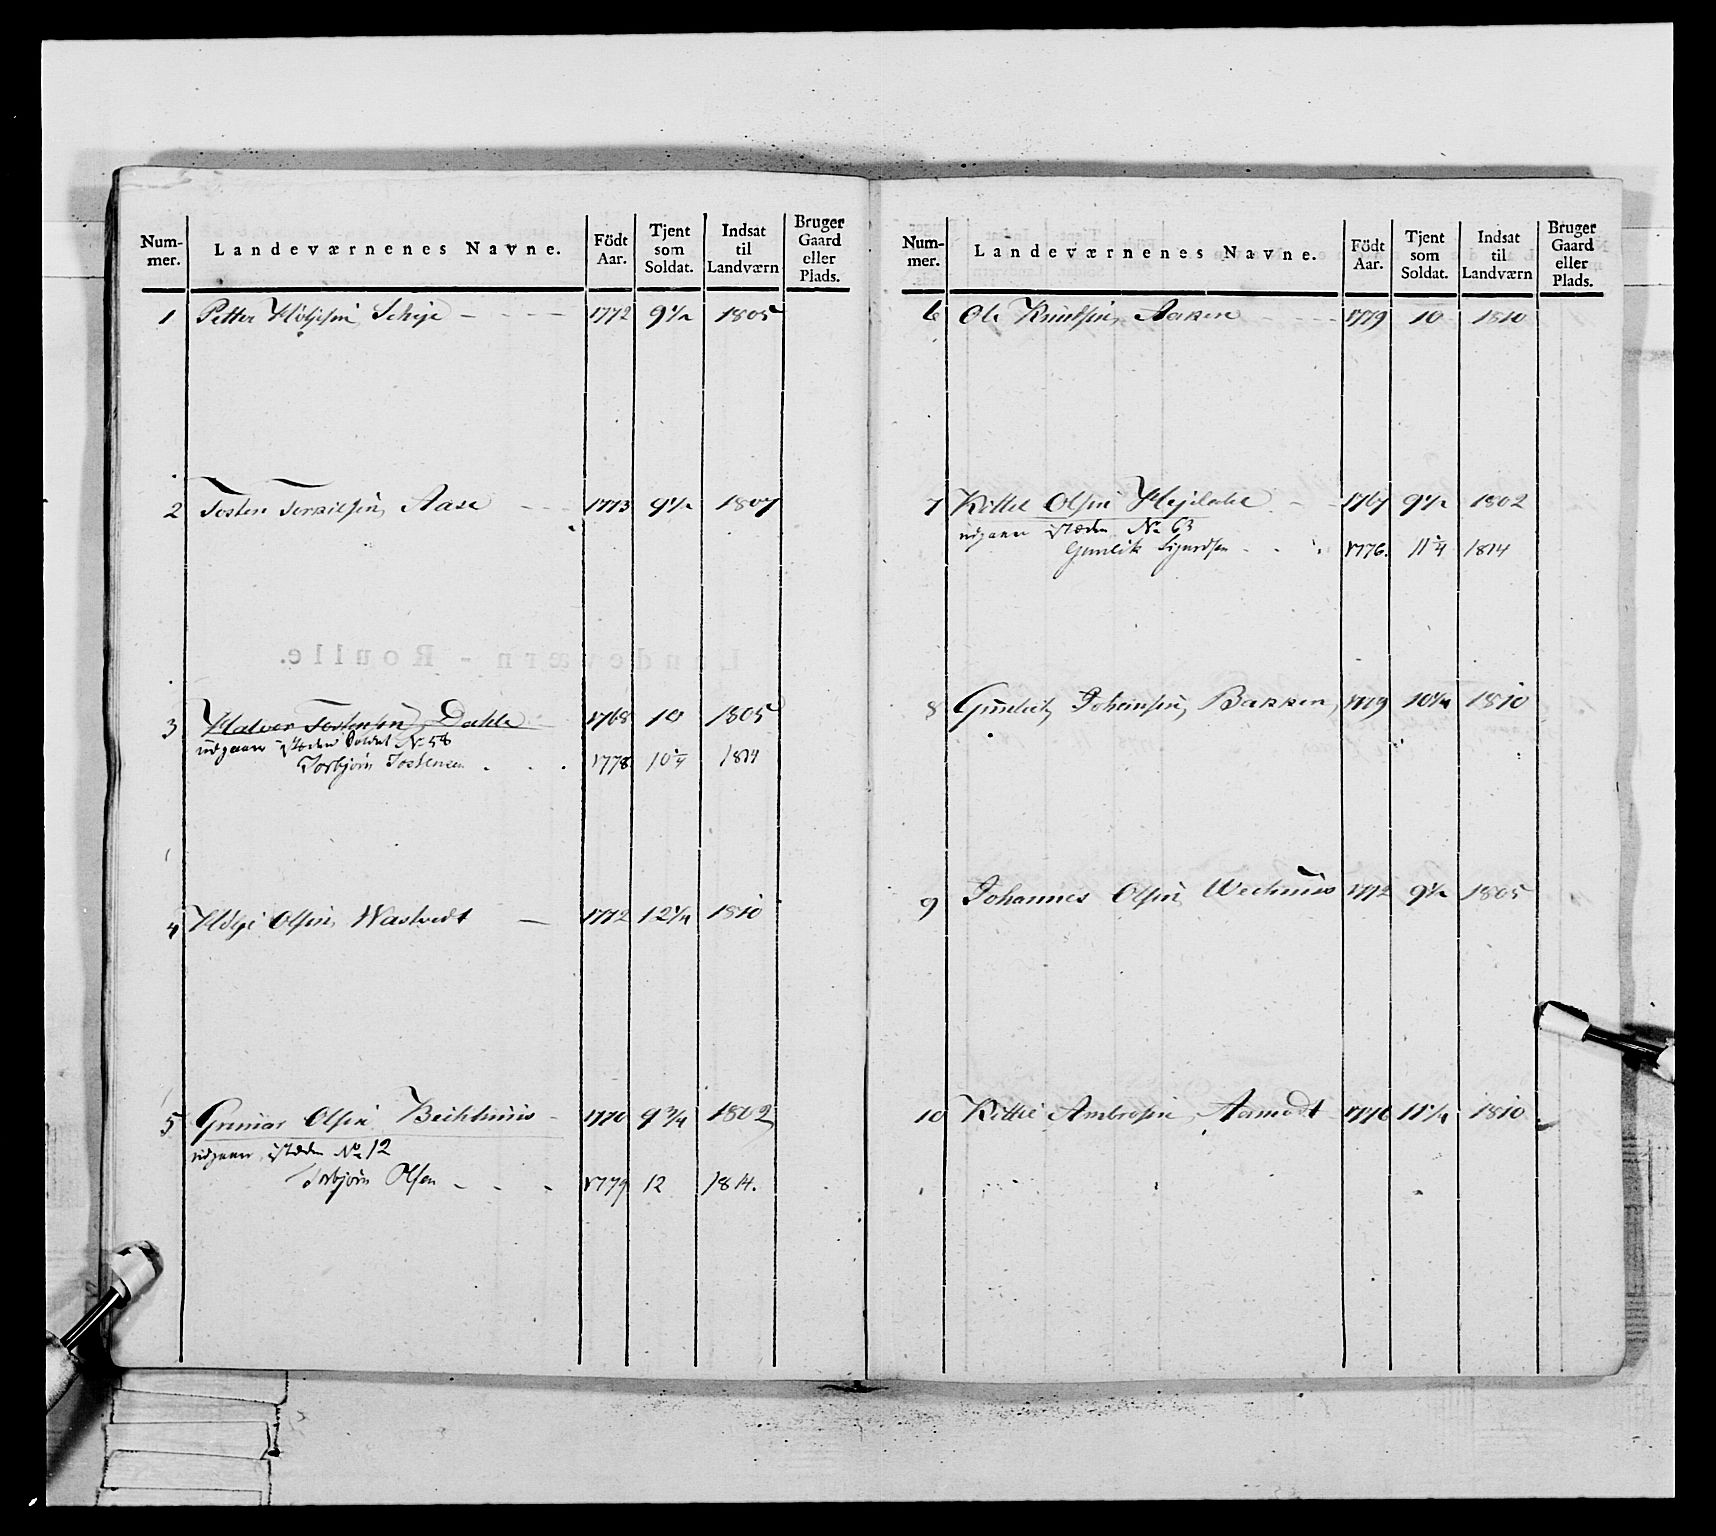 Num-mer. Landeværnenes Navne. Födt Aar. Tjent som Soldat. Indsat til Landværn Bruger Gaard eller Plads.
1 Petter 1772 9 1/2 1805
2 Tosten Aase 1773 9 1/2 1807
3 Halvor Tostensen Dahle 1768 10 1805
udgaaer istæden Soldat No 58
Torbjörn Tostensen 1778 10 1/4 1814
4 Olsen Wastvedt 1772 12 1/4 1810
5 Gunnar Olsen 1770 9 3/4 1802
udgaaer istæden No 12
Torbjörn Olsen 1779 12 1814.
Num-mer. Landeværnenes Navne. Födt Aar. Tjent som Soldat. Indsat til Landværn Bruger Gaard eller Plads.
6 Ole Knudsen 1779 10 1810
7 Kittel Olsen 1767 9 1/2 1802
udgaaer istæden No 63
Gunleik Sigurdsen 1776. 11 1/4 1814
8 Bakken 1779 10 1/4 1810
9 Johannes Olsen 1772 9 1/2 1805
10 Kittel Ambrosen 1776 11 1/4 1810